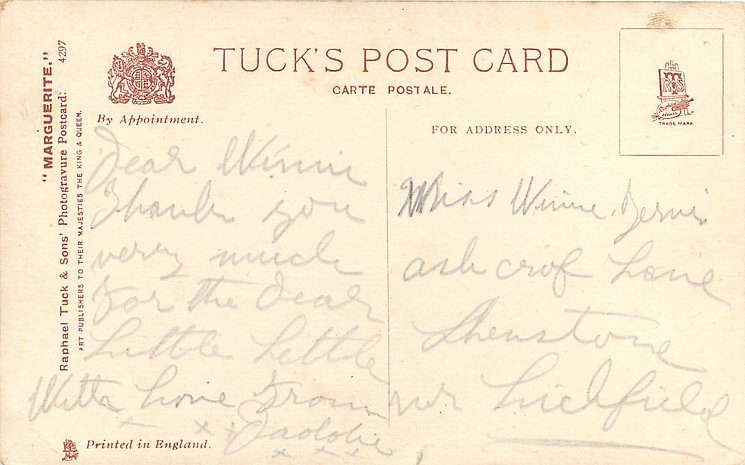 TUCK'S POST CARD
CARTE POSTALE.
By Appointment.
FOR ADDRESS ONLY.
TRADE MARK
"MARGUERITE."
Raphael Tuck & Sons' Photogravure Postcard: 4297
ART PUBLISHERS TO THEIR MAJESTIES THE KING & QUEEN.
Dear Winnie
Thank you
very much
for the dear
little lettle
With love from
x x x
x x x
Miss Winnie
ash crof Lane
Shenstone
nr Lichfield
Printed in England.